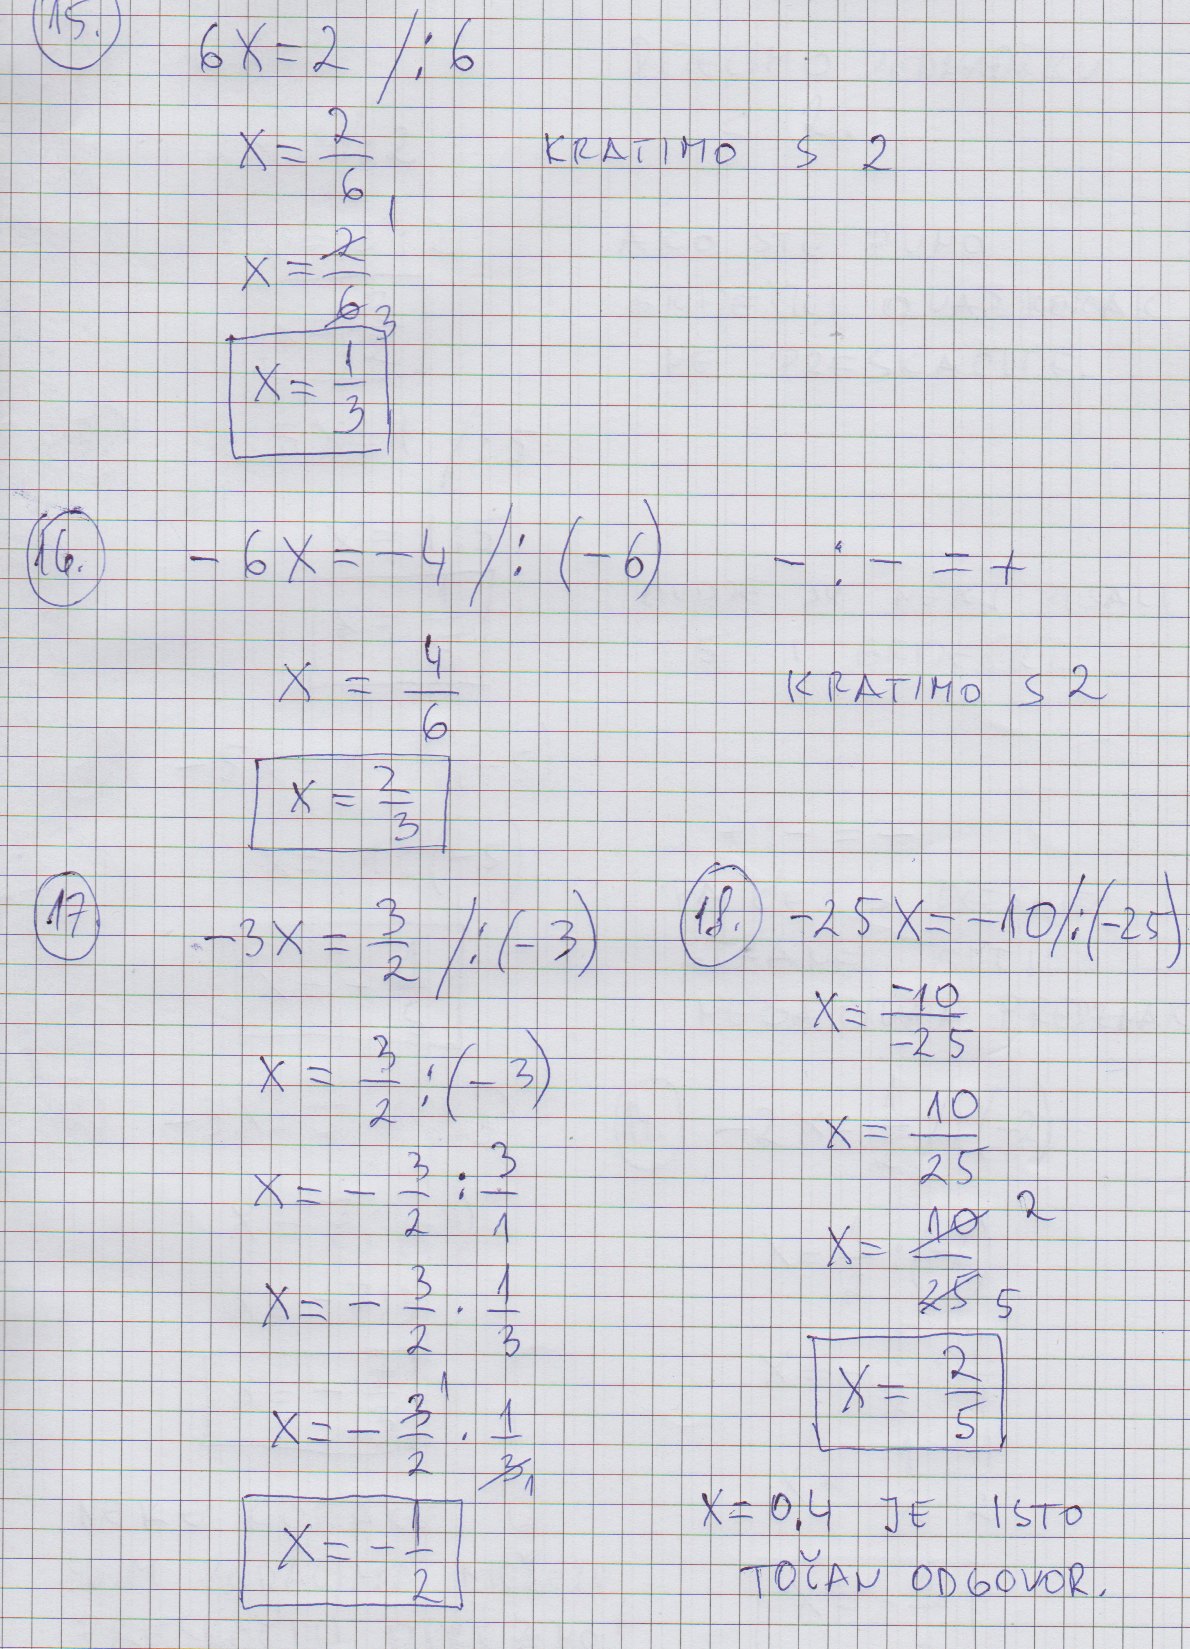 15. 6X=2 /:6
X=2/6 KRATIMO S 2
X=2/6 1 3
X=1/3
16. -6X=-4 /:(-6) -:-=+
X=4/6 KRATIMO S 2
X=2/3
17. -3X=3/2 /:(-3)
X=3/2:(-3)
X=-3/2:3/1
X=-3/2·1/3
X=-3/2·1/3 1 1
X=-1/2
18. -25X=-10/:(-25)
X=-10/-25
X=10/25
X=10/25 2 5
X=2/5
X=0.4 JE ISTO
TOČAN ODGOVOR.